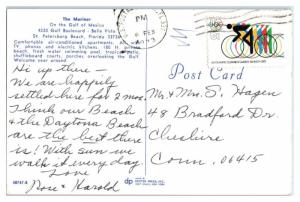 The Mariner
On the Gulf of Mexico
4220 Gulf Boulevard - Bella Vista
St. Petersburg Beach, Florida 33706
Comfortable air-conditioned apartments with
TV, phones and electric kitchens. 180 ft. private
beach, fresh water swimming pool, tropical patio,
shuffleboard courts, porches overlooking the Gulf.
Welcome year around.
Hi up there -
We are happily
settled here for 2 mos.
Think our Beach
& the Daytona Beach
are the best there
is! With sun we
walk it every day.
Love
Rose & Harold
PM
FEB
Post Card
Mr. & Mrs. S. Hagen
48 Bradford Dr.
Cheshire
Conn. 06415
dp